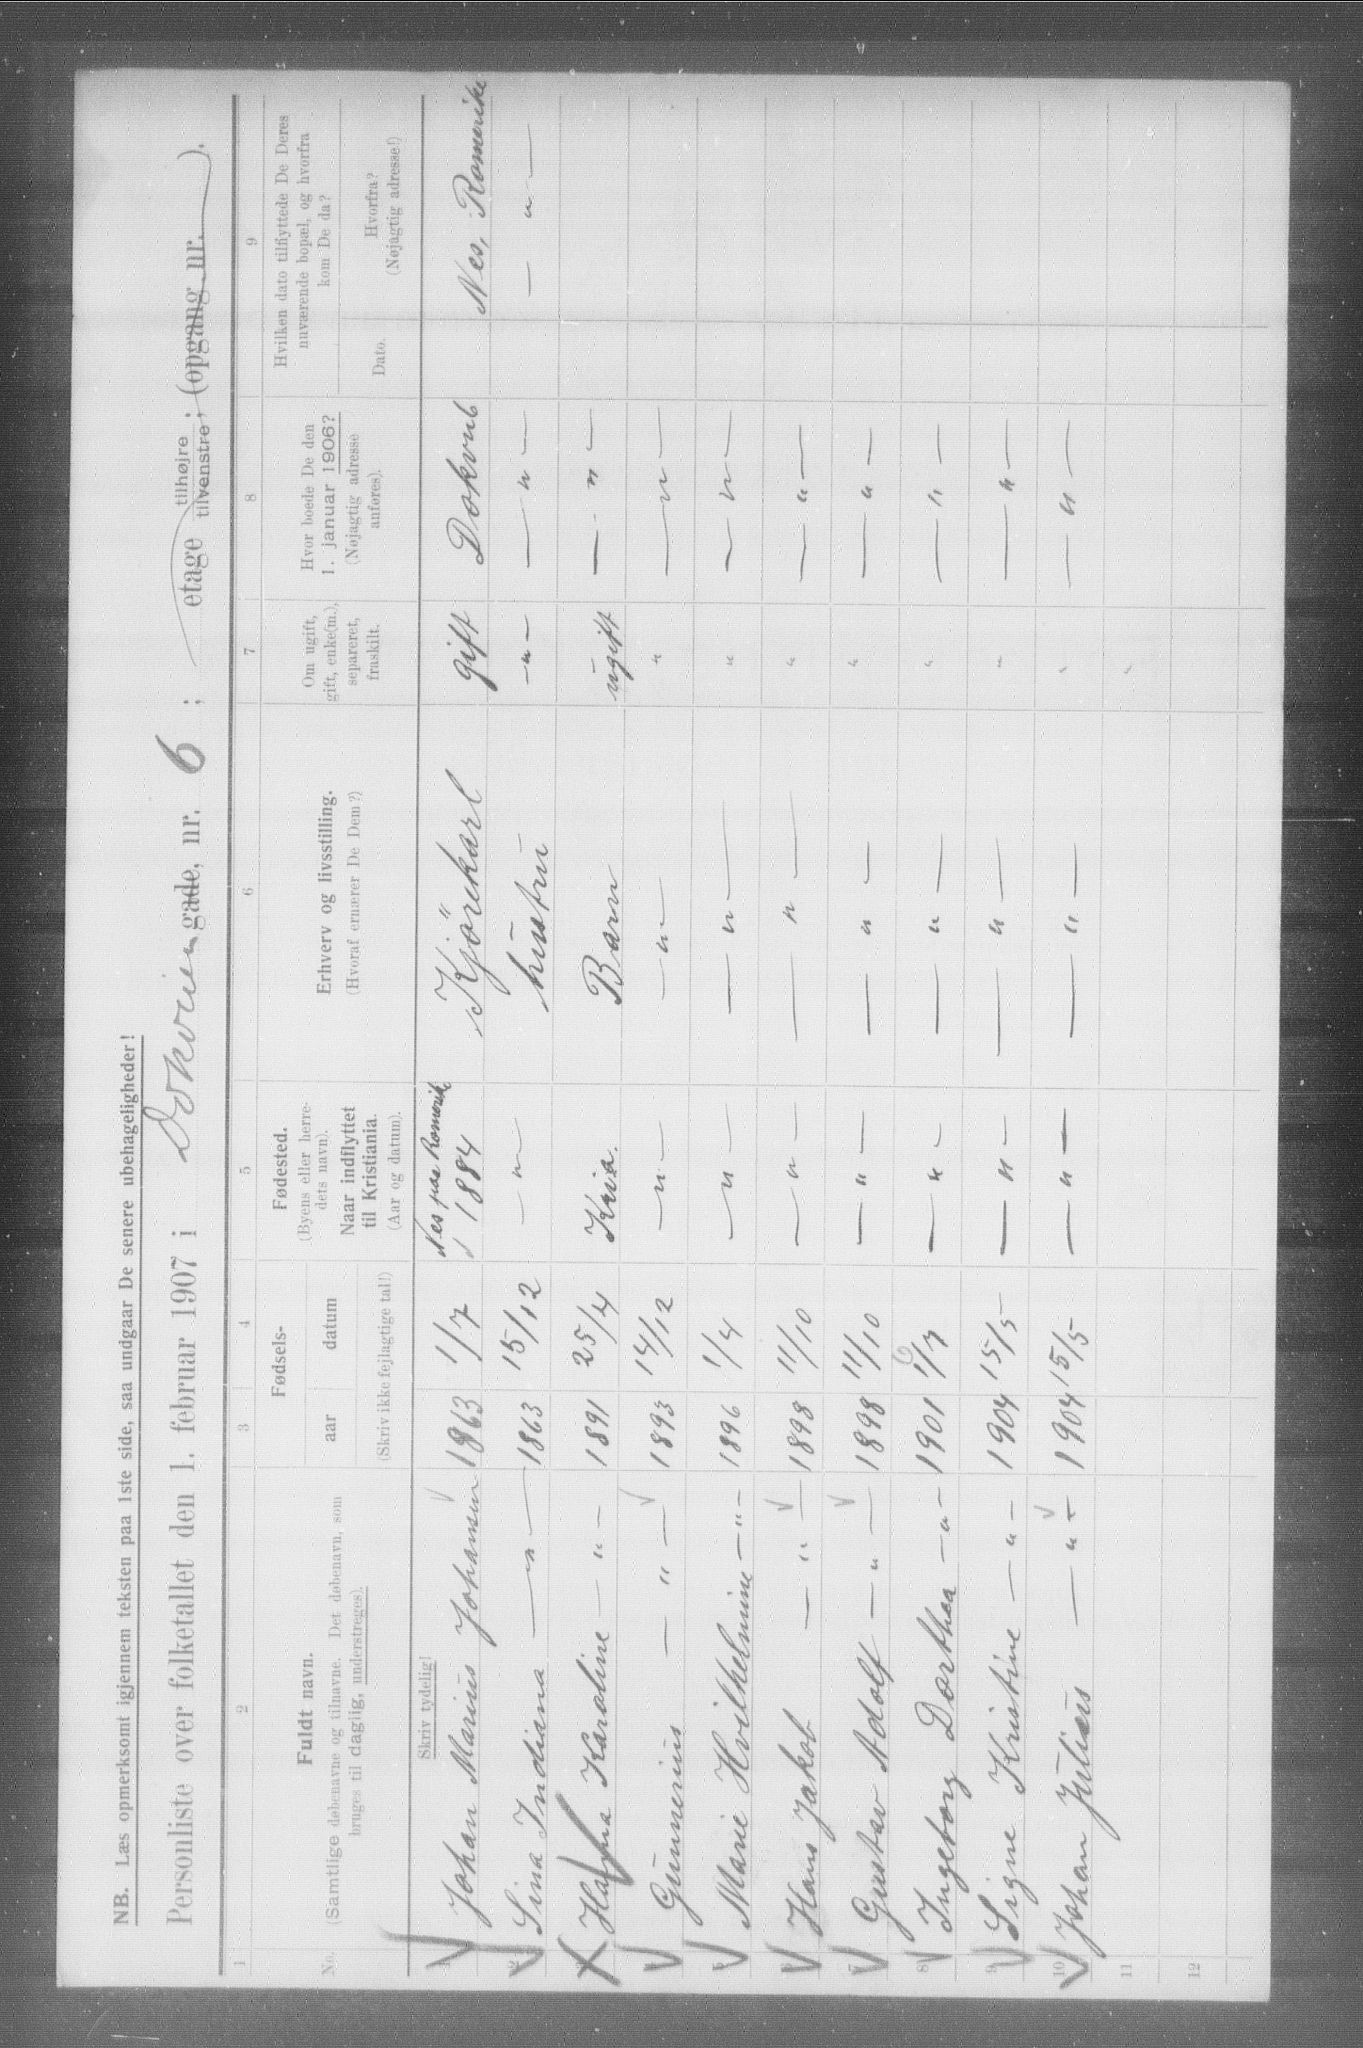 NB. Læs opmerksomt igjennem teksten paa 1ste side, saa undgaar De senere ubehageligheder!
Personliste over folketallet den 1. februar 1907 i Dokveien gade, nr. 6 ; etage tilhøjre tilvenstre ; (opgang nr. ).
1 2 3 4 5 6 7 8 9
No. Fuldt navn. (Samtlige døbenavne og tilnavne. Det døbenavn, som bruges til daglig, understreges).
Fødsels- aar datum (Skriv ikke fejlagtige tal!)
Fødested. (Byens eller herredets navn). Naar indflyttet til Kristiania. (Aar og datum).
Erhverv og livsstilling. (Hvoraf ernærer De Dem?)
Om ugift, gift, enke(m.), separeret, fraskilt.
Hvor boede De den 1. januar 1906? (Nøjagtig adresse anføres).
Hvilken dato tilflyttede De Deres nuværende bopæl, og hvorfra kom De da?
Dato. Hvorfra? (Nøjagtig adresse!)
Skriv tydelig!
Johan Marius Johansen 1863 1/7 Nes paa Romerike 1884 Kjörekarl gift Nes, Romerike
2 Sina Indiana — " — 1863 15/12 — " — hustru — " — — " — — " —
Karoline — " — 1891 25/4 Kria. Barn ugift — " —
Gunnerius — " — 1893 14/12 — " — — " — " — " —
Marie Hvilhelmine — " — 1896 1/4 — " — — " — " — " —
Hans Jakob — " — 1898 11/10 — " — — " — " — " —
7 Gustav Adolf — " — 1898 11/10 — " — — " — " — " —
8 Ingeborg Dorthea — " — 1901 — " — — " — " — " —
9 Signe Kristine — " — 1904 15/5 — " — — " — " — " —
10 Johan Julius — " — 1904 15/5 — " — — " — " — " —
11 "
12